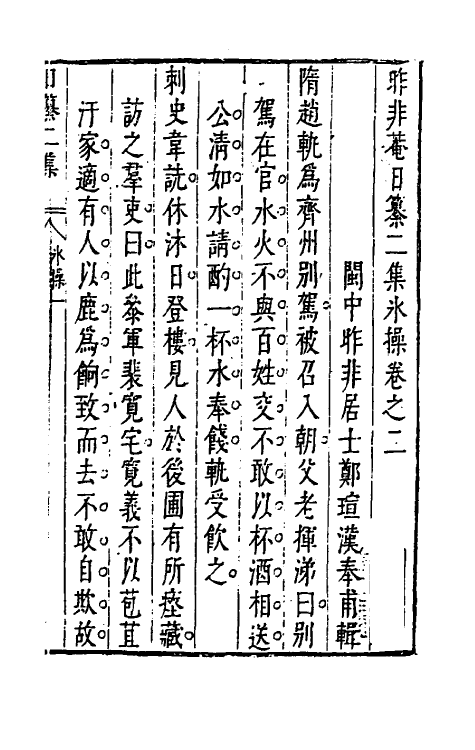 昨非菴日纂二集氷操卷之二
閩中昨非居士鄭瑄漢奉甫輯
隋趙軌爲齊州別駕被召入朝父老揮涕曰別
駕在官水火不與百姓交不敢以杯酒相送
公清如水請酌一杯水奉餞軌受飲之
刺史韋詵休沐日登樓見人於後圃有所瘞藏
訪之羣吏曰此叅軍裴寬宅寬義不以苞苴
汙家適有人以鹿爲餉致而去不敢自欺故
日纂二集 氷操 一